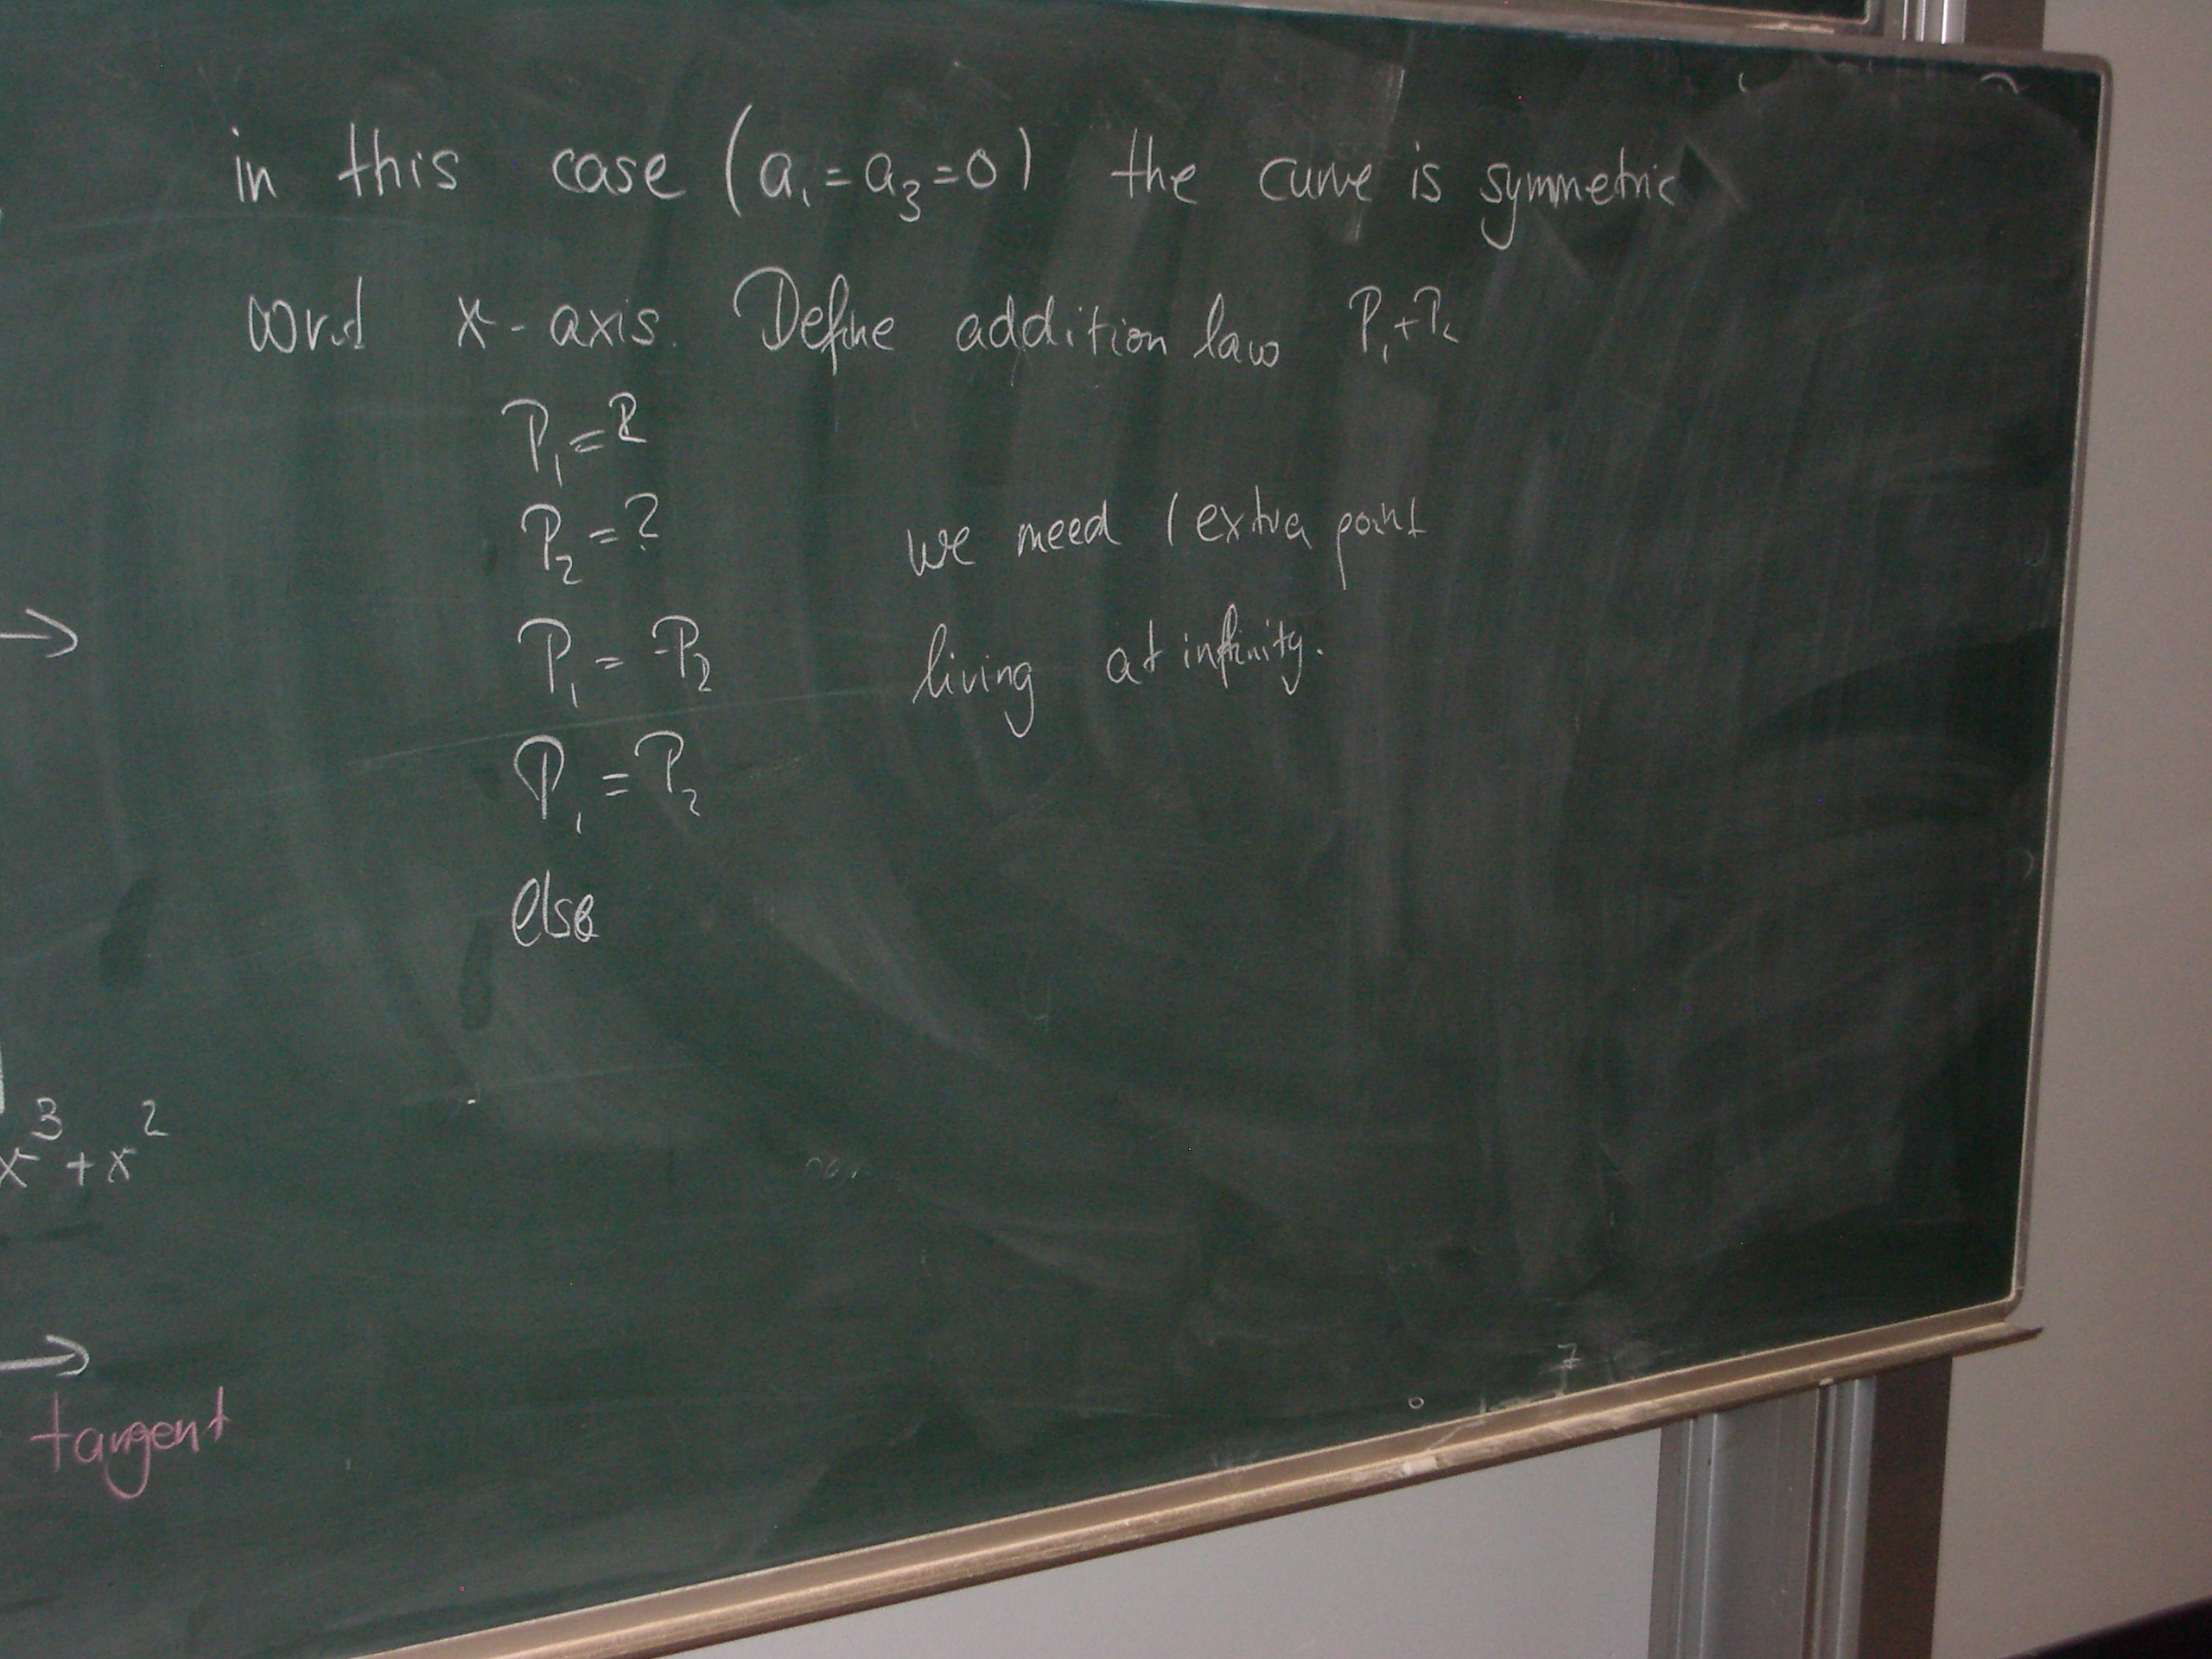 in this case (a₁=a₃=0) the curve is symmetric
x-axis. Define addition law P₁+P₂
P₁=?
P₂=?
we need 1 extra point
P₁ = -P₂
living at infinity.
P₁ = P₂
else
x³+x²
tangent